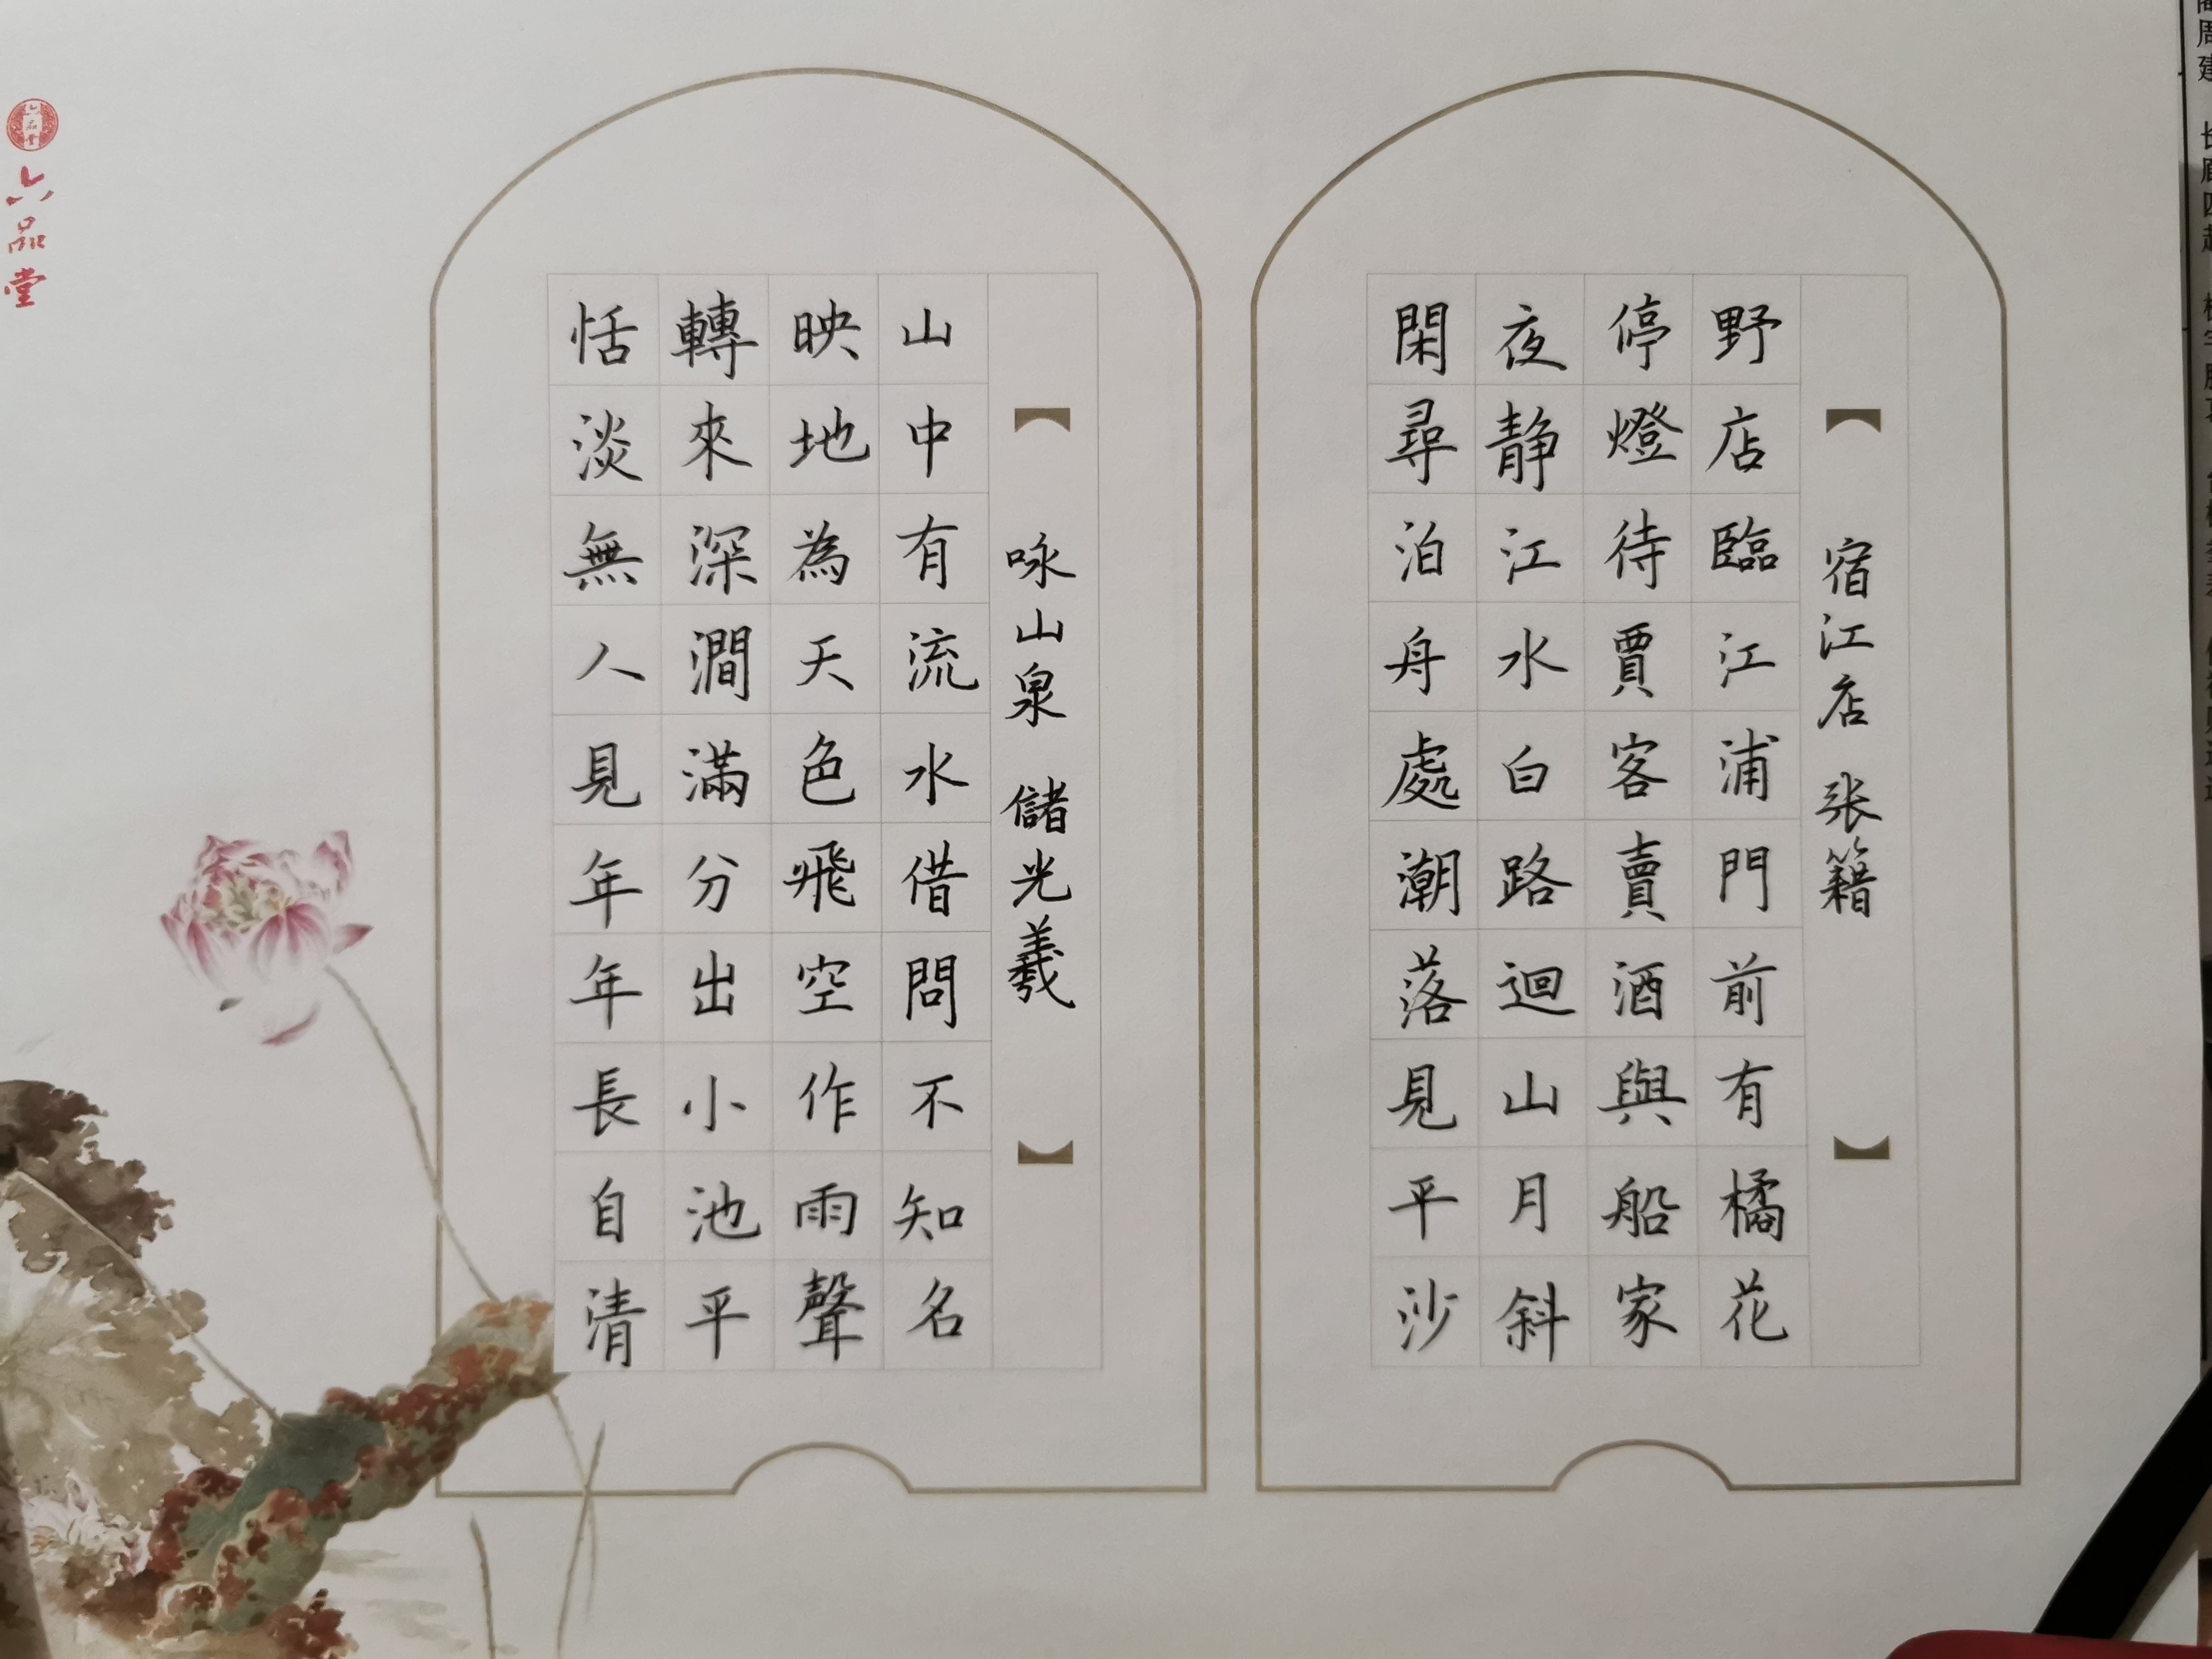 宿江店 张籍
野店臨江浦門前有橘花
停燈待賈客賣酒與船家
夜静江水白路迴山月斜
閑尋泊舟處潮落見平沙
咏山泉 儲光羲
山中有流水借問不知名
映地為天色飛空作雨聲
轉來深澗滿分出小池平
恬淡無人見年年長自清
六品堂